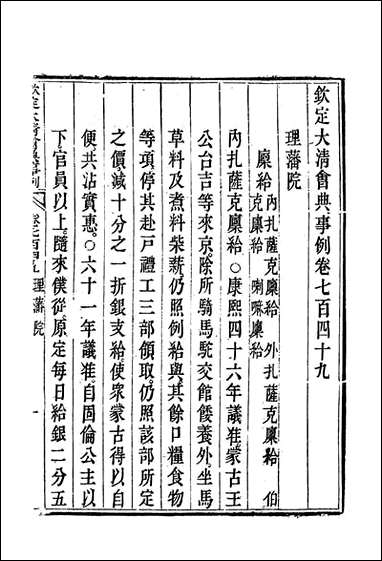 欽定大清會典事例卷七百四十九
理藩院
廩給 內扎薩克廩給 外扎薩克廩給 伯
克廩給 喇嘛廩給
內扎薩克廩給○康熙四十六年議准蒙古王
公台吉等來京除所騎馬駝交館餧養外坐馬
草料及煮料柴薪仍照例給與其餘口糧食物
等項停其赴戶禮工三部領取仍照該部所定
之價減十分之一折銀支給使衆蒙古得以自
便共沾實惠○六十一年議准自固倫公主以
下官員以上隨來僕從原定每日給銀二分五
理藩院
一